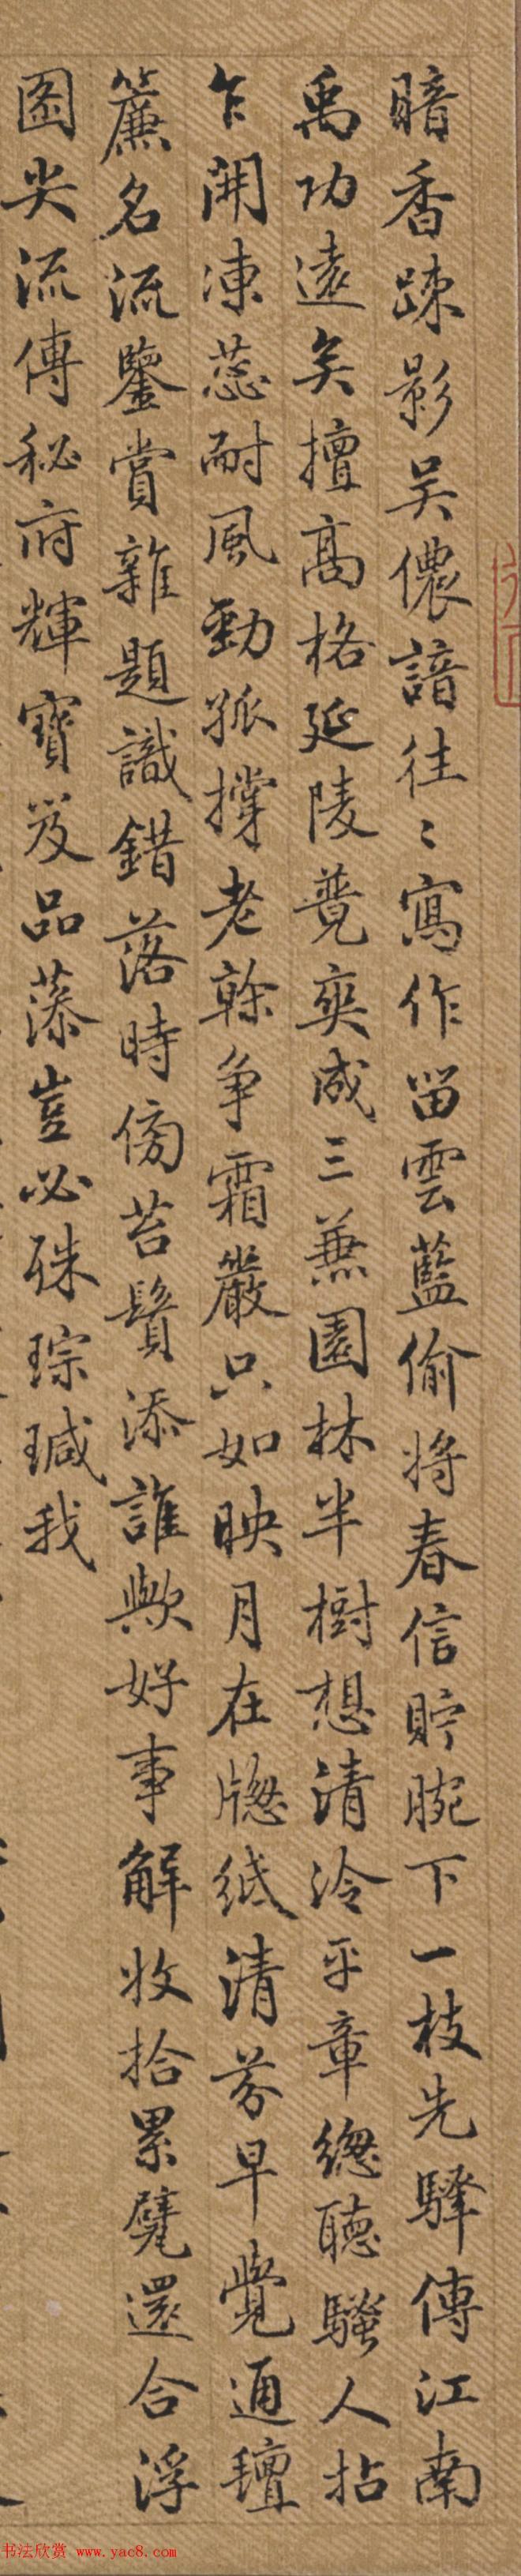 暗香疎影吳儂諳往〻寫作留雲藍偷將春信貯腕下一枝先驛傳江南
禹功遠矣擅高格延陵覓奕成三兼園林半樹想清泠平章總聽騷人拈
乍開凍蕊耐風勁孤撐老榦爭霜嚴只如映月在牕紙清芬早覺通璮
簾名流鑒賞雜題識錯落時傍苔鬢添誰歟好事解收拾累甓還合浮
圖尖流傳秘府輝寶笈品藻豈必硃琮瑊我
书法欣赏 www.yac8.com